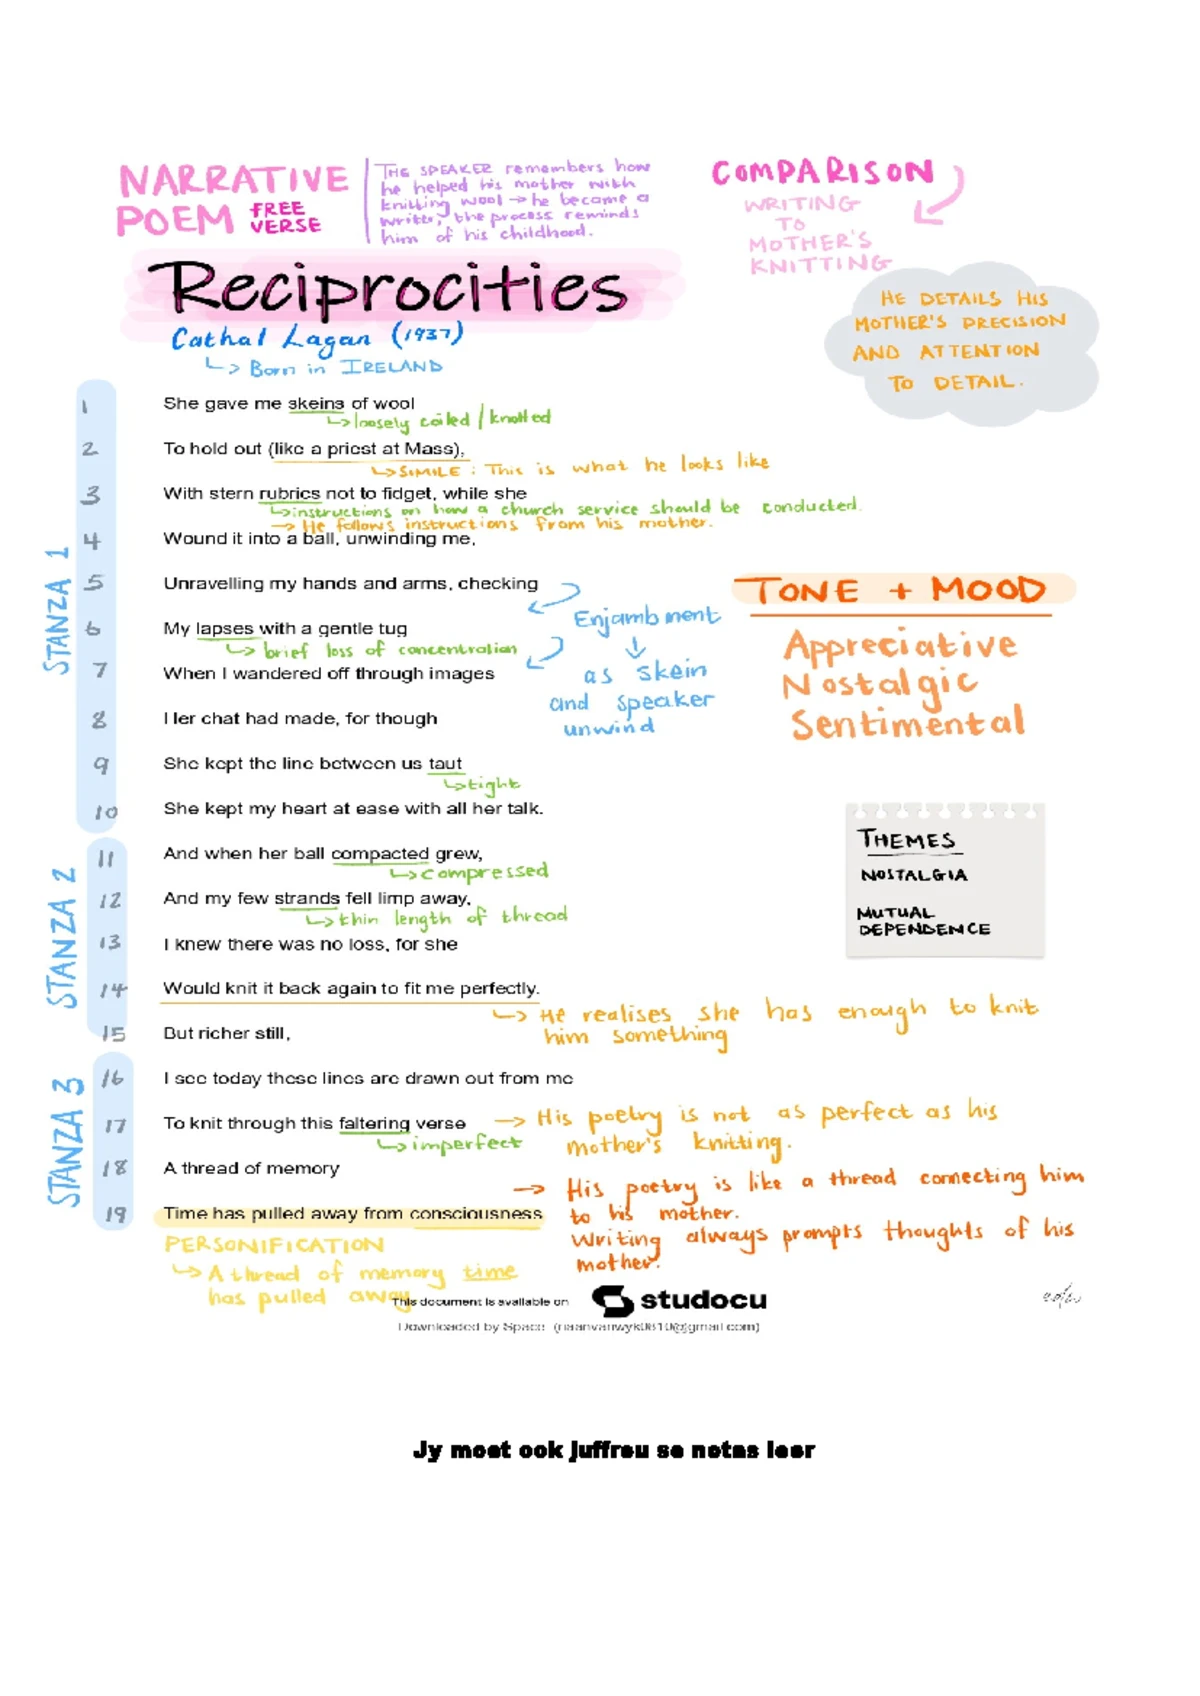 NARRATIVE
POEM FREE
VERSE
THE SPEAKER remembers how
he helped his mother with
knitting wool → he became a
writer, the process reminds
him of his childhood.
COMPARISON
WRITING
TO
MOTHER'S
KNITTING
HE DETAILS HIS
MOTHER'S PRECISION
AND ATTENTION
TO DETAIL.
Reciprocities
Cathal Lagan (1937)
↳ Born in IRELAND
STANZA 1
1 She gave me skeins of wool
↳ loosely coiled / knotted
2 To hold out (like a priest at Mass),
↳ SIMILE : This is what he looks like
3 With stern rubrics not to fidget, while she
↳ instructions on how a church service should be conducted.
→ He follows instructions from his mother.
4 Wound it into a ball, unwinding me,
5 Unravelling my hands and arms, checking
6 My lapses with a gentle tug
↳ brief loss of concentration
7 When I wandered off through images
8 Her chat had made, for though
9 She kept the line between us taut
↳ tight
10 She kept my heart at ease with all her talk.
Enjambment
↓
as skein
and speaker
unwind
TONE + MOOD
Appreciative
Nostalgic
Sentimental
THEMES
NOSTALGIA
MUTUAL
DEPENDENCE
STANZA 2
11 And when her ball compacted grew,
↳ compressed
12 And my few strands fell limp away,
↳ thin length of thread
13 I knew there was no loss, for she
14 Would knit it back again to fit me perfectly.
↳ He realises she has enough to knit
him something
15 But richer still,
STANZA 3
16 I see today these lines are drawn out from me
17 To knit through this faltering verse
↳ imperfect
→ His poetry is not as perfect as his
mother's knitting.
18 A thread of memory
19 Time has pulled away from consciousness
→ His poetry is like a thread connecting him
to his mother.
Writing always prompts thoughts of his
mother.
PERSONIFICATION
↳ A thread of memory time
has pulled away
This document is available on
studocu
Downloaded by Space (riaanvanwyk0810@gmail.com)
Jy moet ook juffrou se notas leer